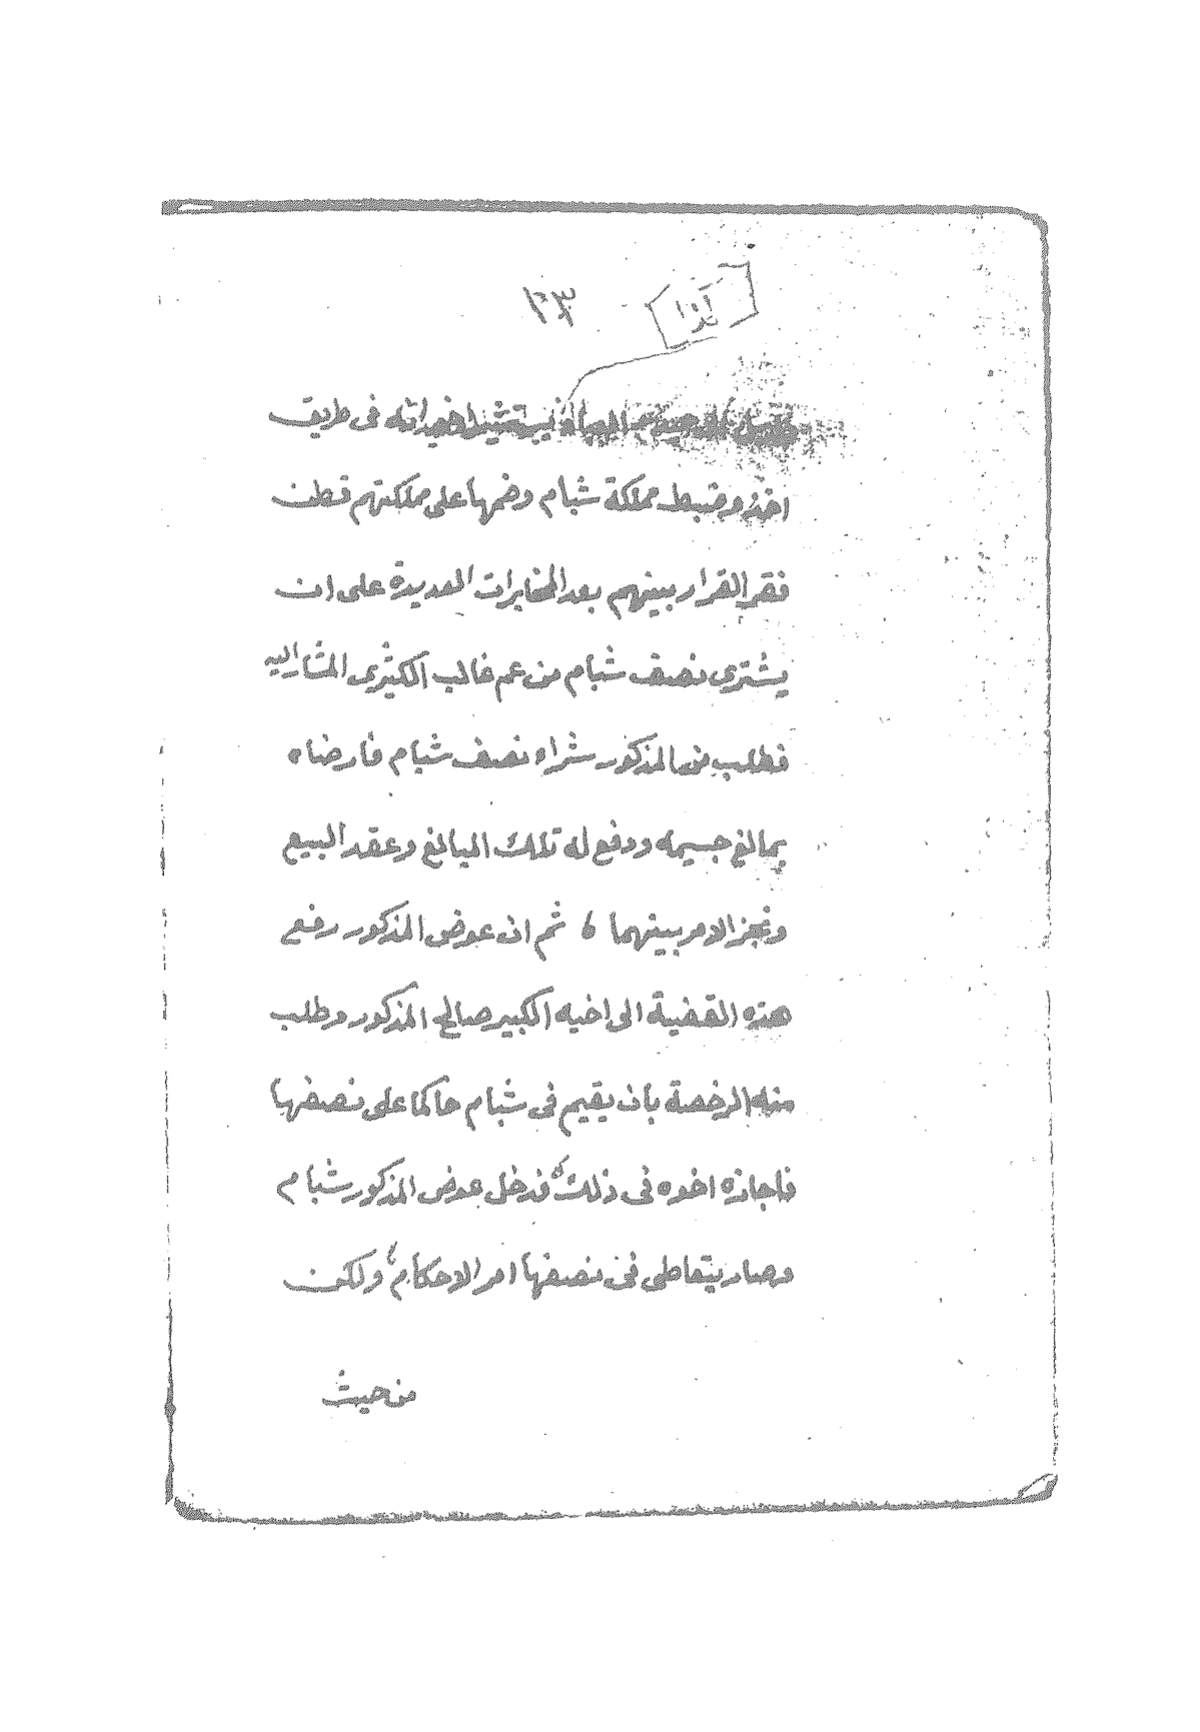 كذا
١٣
يستشير اخيرانه فى طريق
اخذ وضبط مملكة شبام وضمها على مملكتهم قطن
فقر القرار بينهم بعد المخابرات العديدة على ان
يشترى نصف شبام من عم غالب الكثيرى المشار اليه
فطلب من المذكور شراء نصف شبام فارضاه
بمالغ جسيمه ودفع له تلك المبالغ وعقد البيع
ونجز الامر بينهما ثم ان عوض المذكور رفع
هذه القضية الى اخيه الكبير صالح المذكور وطلب
منه الرخصة بان يقيم فى شبام حاكما على نصفها
فاجازه اخوه فى ذلك فدخل عوض المذكور شبام
وصار يتعاطى فى نصفها امر الاحكام ولكن
من حيث